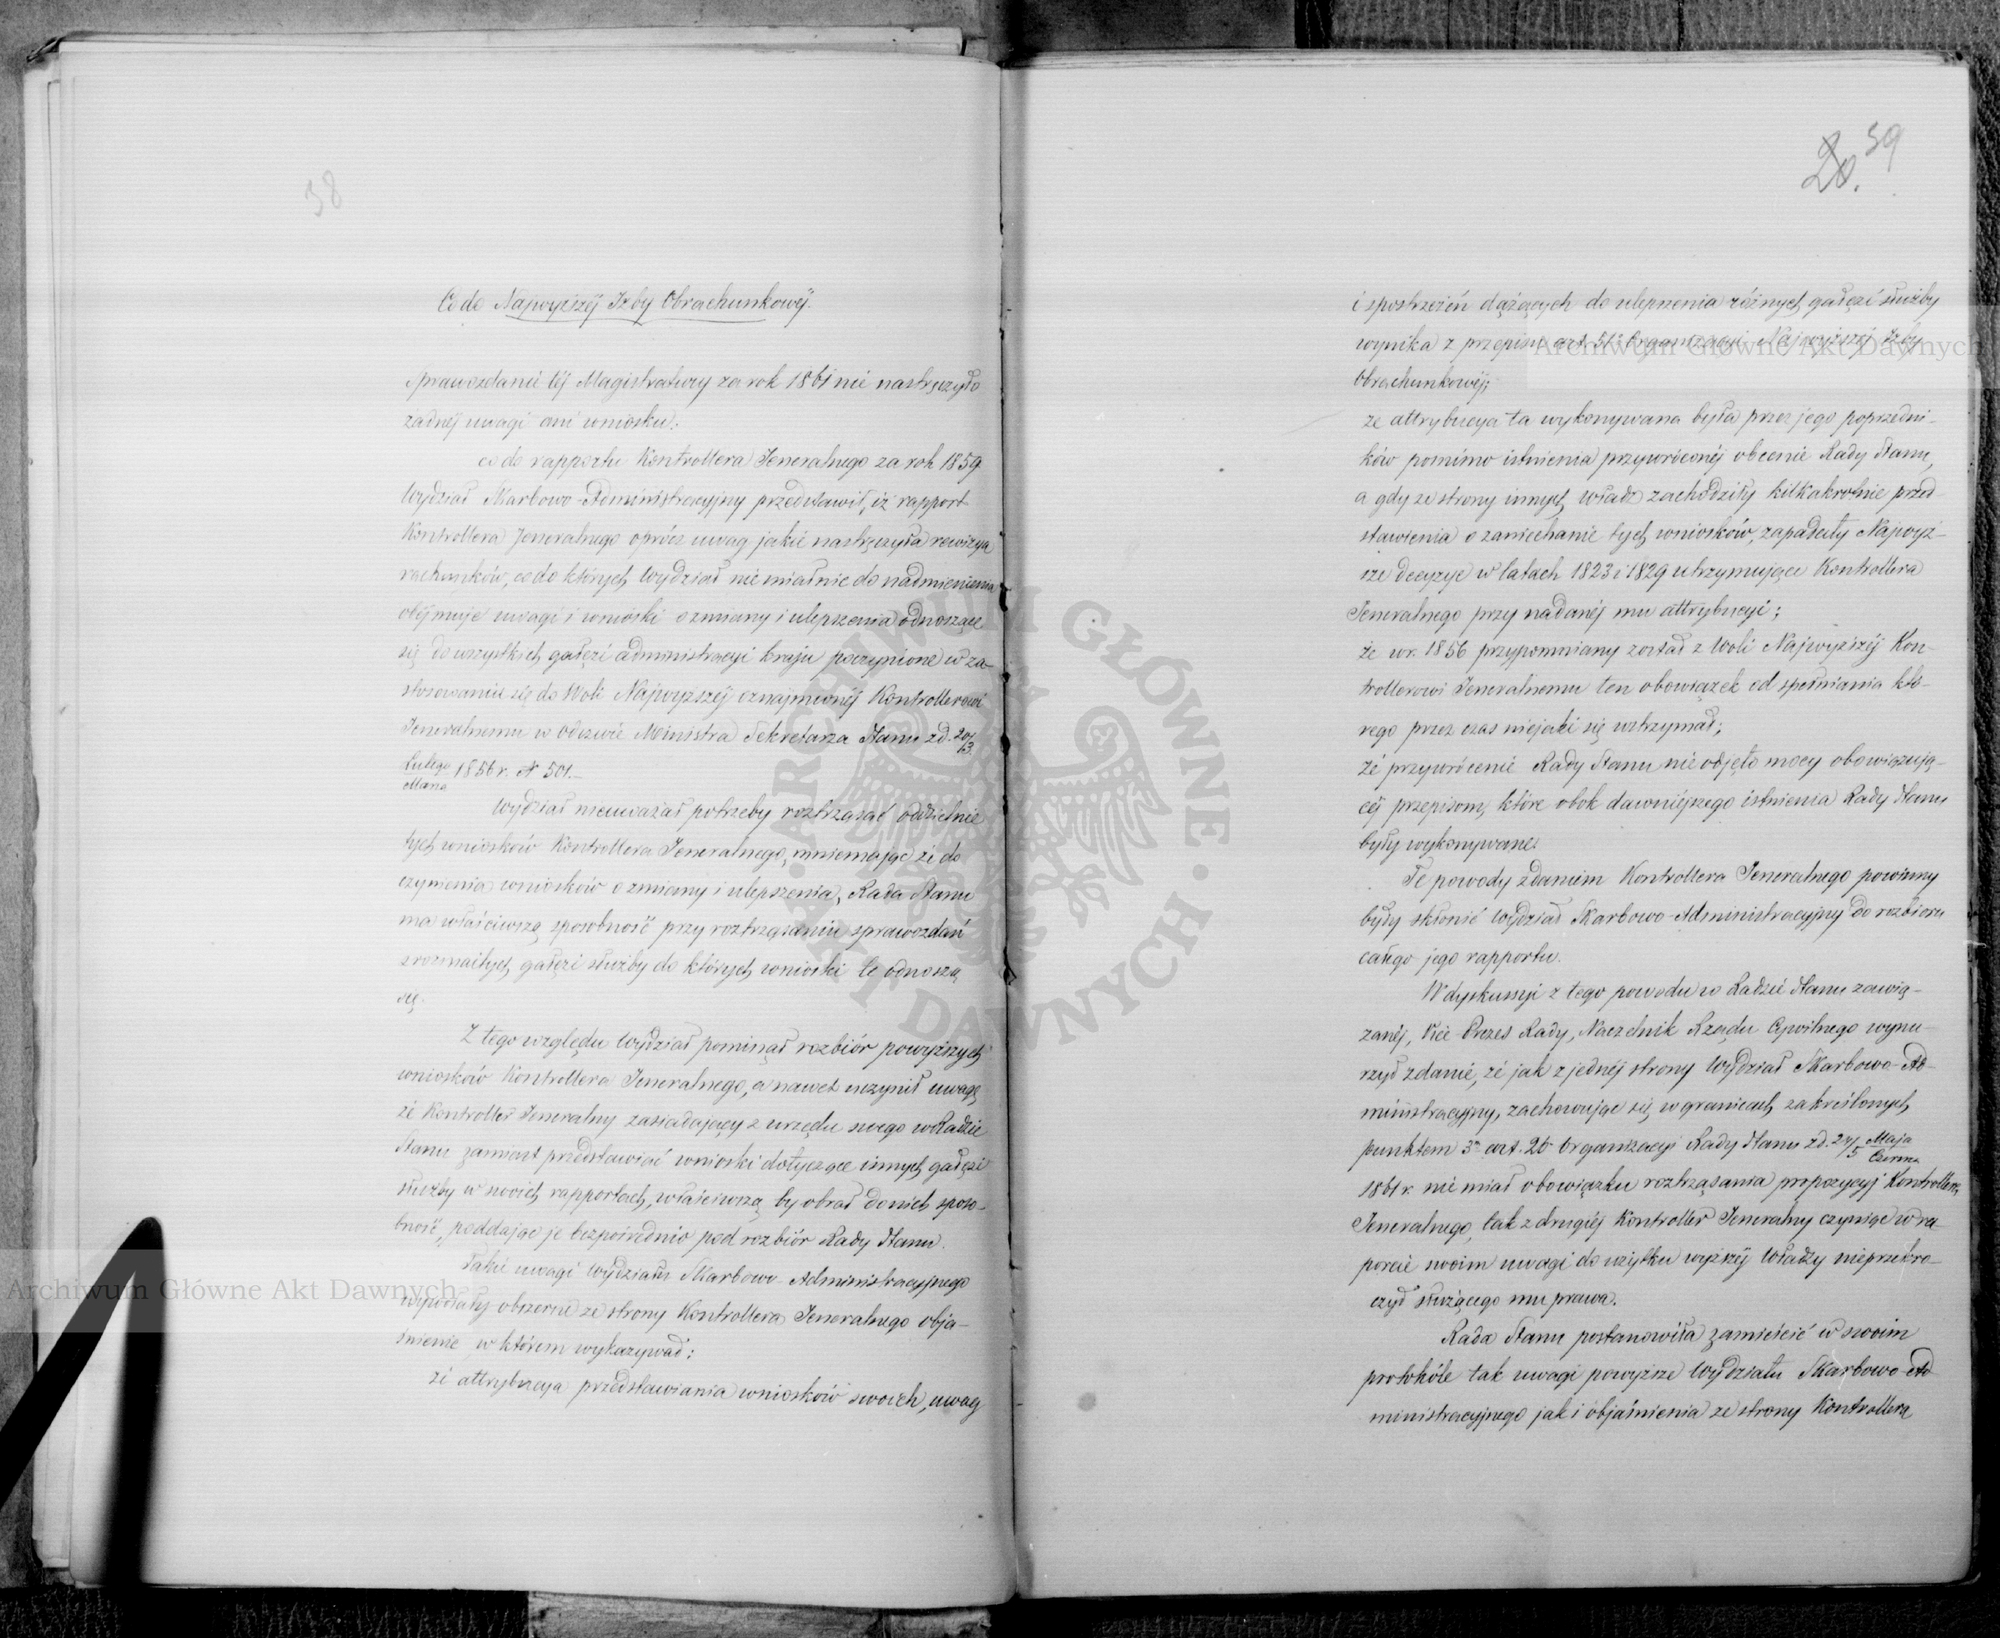 38
Co do Najwyższéj Izby Obrachunkowéj.
Sprawozdanie téj Magistratury za rok 1861 nie nastręczyło
żadnéj uwagi ani wniosku.
co do rapportu Kontrollera Jeneralnego za rok 1859
Wydział Skarbowo-Administracyjny przedstawił, iż rapport
Kontrollera Jeneralnego oprócz uwag jakie nastręczyła rewizya
rachunków, co do których Wydział nie miał nic do nadmienienia
obejmuje uwagi i wnioski o zmiany i ulepszenia odnoszące
się do wszystkich gałęzi administracyi kraju poczynione w za-
stosowaniu się do Woli Najwyższéj oznajmionéj Kontrollerowi
Jeneralnemu w odezwie Ministra Sekretarza Stanu z d. 20/3
Lutego/Marca 1856 r. N 501.-
Wydział nieuważał potrzeby roztrząsać oddzielnie
tych wniosków Kontrollera Jeneralnego, mniemając że do
czynienia wniosków o zmiany i ulepszenia, Rada Stanu
ma właściwszą sposobność przy roztrząsaniu sprawozdań
z rozmaitych gałęzi służby do których wnioski te odnoszą
się.
Z tego względu Wydział pominął rozbiór powyższych
wniosków Kontrollera Jeneralnego, a nawet uczynił uwagę
że Kontroller Jeneralny zasiadający z urzędu swego w Radzie
Stanu zamiast przedstawiać wnioski dotyczące innych gałęzi
służby w swoich rapportach, właściwszą by obrał do nich sposo-
bność, poddając je bezpośrednio pod rozbiór Rady Stanu.
Takie uwagi Wydziału Skarbowo-Administracyjnego
wywołały obszerne ze strony Kontrollera Jeneralnego obja-
śnienie w którem wykazywał:
że attrybucya przedstawiania wniosków swoich, uwag
20. 59
i spostrzeżeń dążących do ulepszenia różnych gałęzi służby
wynika z przepisu art. 51 Organizacyi Najwyższéj Izby
Obrachunkowéj;
że attrybucya ta wykonywana była przez jego poprzedni-
ków pomimo istnienia przywróconéj obecnie Rady Stanu,
a gdy ze strony innych władz zachodziły kilkakrotnie przed-
stawienia o zaniechanie tych wniosków, zapadały Najwyż-
sze decyzye w latach 1823 i 1829 utrzymujące Kontrollera
Jeneralnego przy nadanéj mu attrybucyi;
że w r. 1856 przypomniany został z Woli Najwyższéj Kon-
trollerowi Jeneralnemu ten obowiązek od spełniania któ-
rego przez czas niejaki się wstrzymał;
że przywrócenie Rady Stanu nie odjęło mocy obowiązują-
céj przepisom, które obok dawniejszego istnienia Rady Stanu
były wykonywane.
Te powody zdaniem Kontrollera Jeneralnego powinny
były skłonić Wydział Skarbowo-Administracyjny do rozbioru
całego jego rapportu.
W dyskussyi z tego powodu w Radzie Stanu zawią-
zanéj, Vice-Prezes Rady, Naczelnik Rządu Cywilnego wynu-
rzył zdanie, że jak z jednéj strony Wydział Skarbowo-Ad-
ministracyjny, zachowując się w granicach zakreślonych
punktem 3m art. 26 Organizacyi Rady Stanu z d. 24/5 Maja/Czerwca
1861 r. nie miał obowiązku roztrząsania propozycyj Kontrollera
Jeneralnego, tak z drugiéj Kontroller Jeneralny czyniąc w ra-
porcie swoim uwagi do użytku wyższéj Władzy nieprzekro-
czył służącego mu prawa.
Rada Stanu postanowiła zamieścić w swoim
protokóle tak uwagi powyższe Wydziału Skarbowo-Ad
ministracyjnego jak i objaśnienia ze strony Kontrollera
Archiwum Główne Akt Dawnych
Archiwum Główne Akt Dawnych
ARCHIWUM GŁÓWNE
AKT DAWNYCH